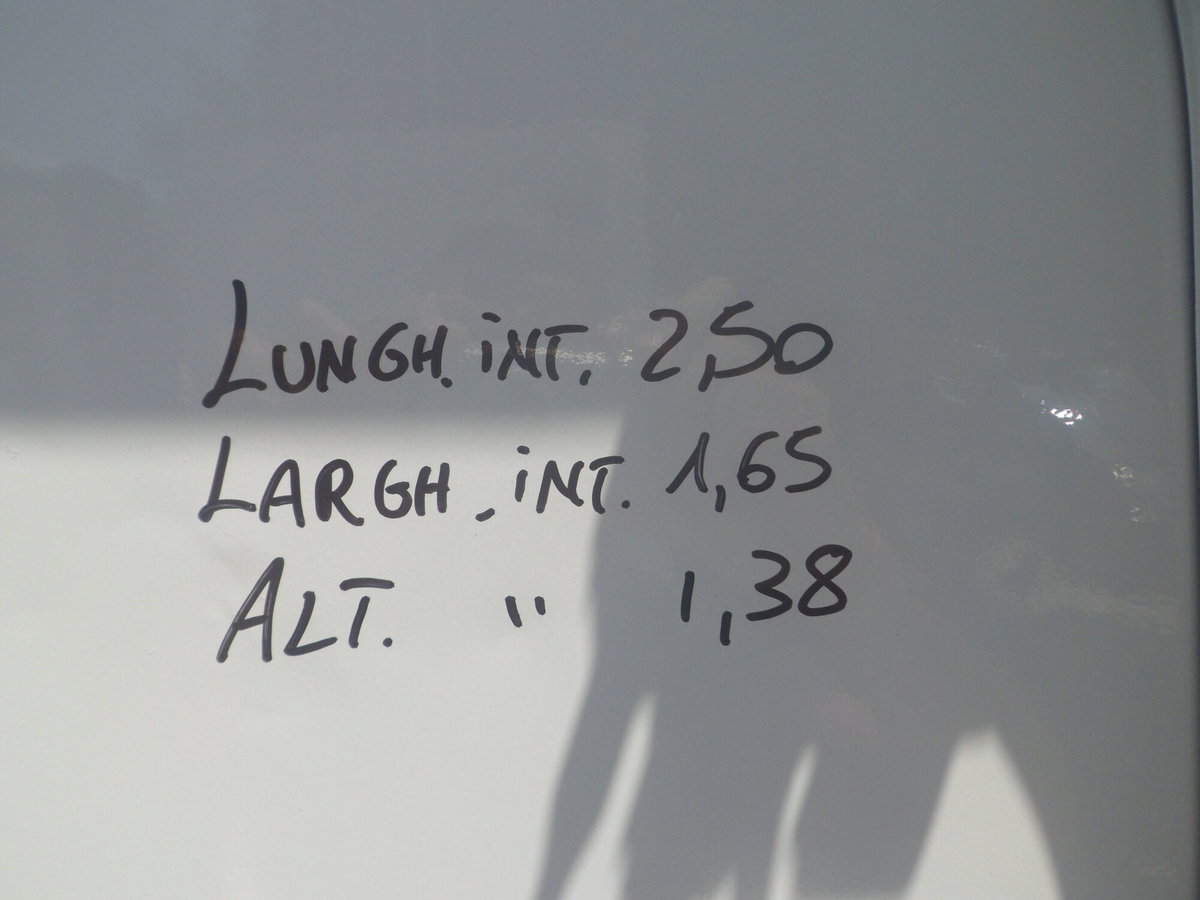 LUNGH. iNT. 2,50
LARGH. iNT. 1,65
ALT. " 1,38